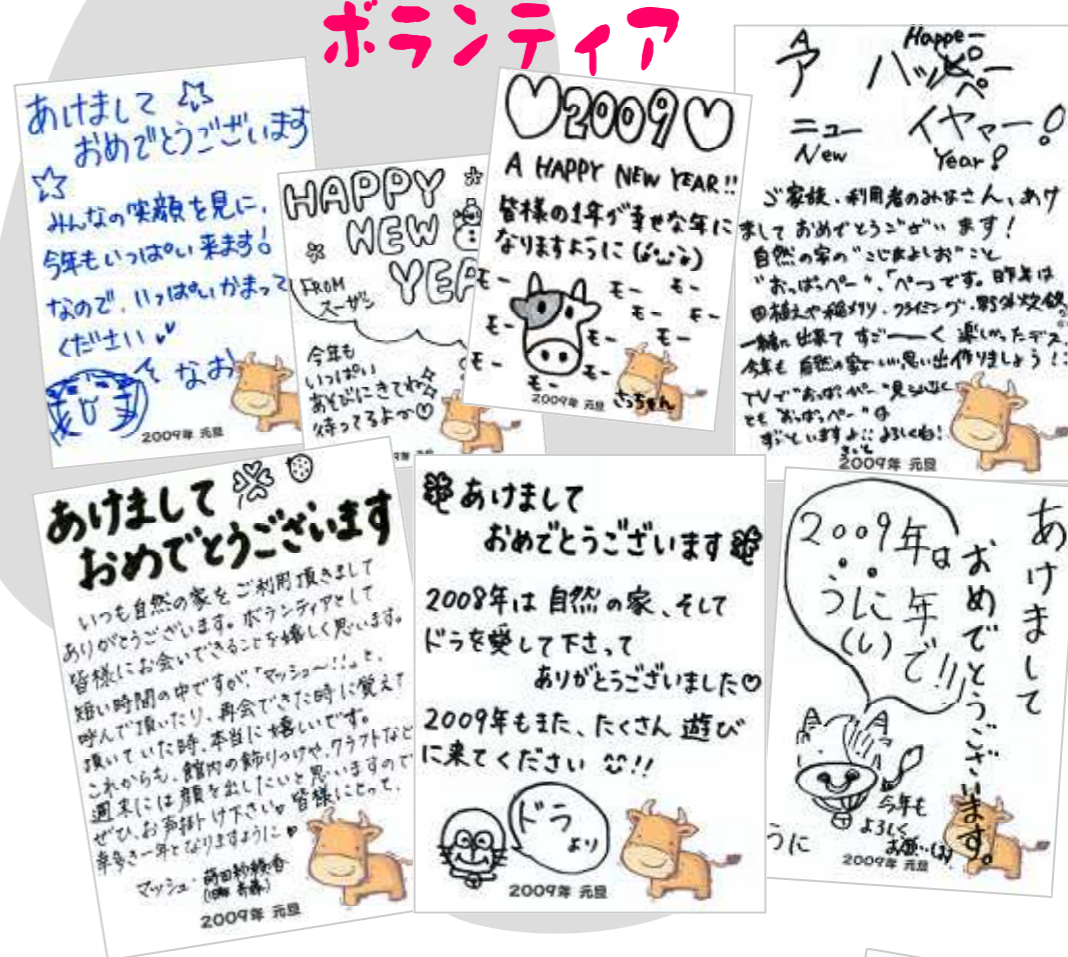 ボランティア
あけまして
おめでとうございます
みんなの笑顔を見に、
今年もいっぱい来ます!
なので、いっぱいかまって
ください
なお
2009年 元旦
HAPPY
NEW
YEA
FROM
スーザン
今年も
いっぱい
あそびにきてね
待ってるよ
2009
A HAPPY NEW YEAR!!
皆様の1年が幸せな年に
なりますように
モー
モー モー
モー モー
モー モー
モー モー
モー
2009年 元旦
さっちゃん
A Happe-
ア ハッピペー
ニュー イヤァー!
New Year!
ご家族、利用者のみなさん、あけ
まして おめでとうございます!
自然の家の
"おっぱっぺー"、「ぺー」です。昨年は
田植えや稲刈り、クライミング、野外炊飯
一緒に出来て すごーーく 楽しかったデス
今年も 自然の家でいい思い出作りましょう!
2009年 元旦
あけまして
おめでとうございます
いつも自然の家をご利用頂きまして
ありがとうございます。ボランティアとして
皆様にお会いできることを嬉しく思います。
短い時間の中ですが、「マッシュ〜!!」と、
呼んで頂いたり、再会できた時に覚えて
頂いていた時、本当に嬉しいです。
これからも、館内の飾りつけや、クラフトなど
週末には顔を出したいと思いますので
ぜひ、お声掛け下さい。皆様にとって、
幸多き一年となりますように
マッシュ
2009年 元旦
あけまして
おめでとうございます
2008年は 自然の家、そして
ドラを愛して下さって
ありがとうございました♡
2009年もまた、たくさん 遊び
に来てください!!
ドラ
より
2009年 元旦
あけまして
おめでとうございます。
2009年は
うし年
(い)で!!
今年も
よろしく
うに
2009年 元旦